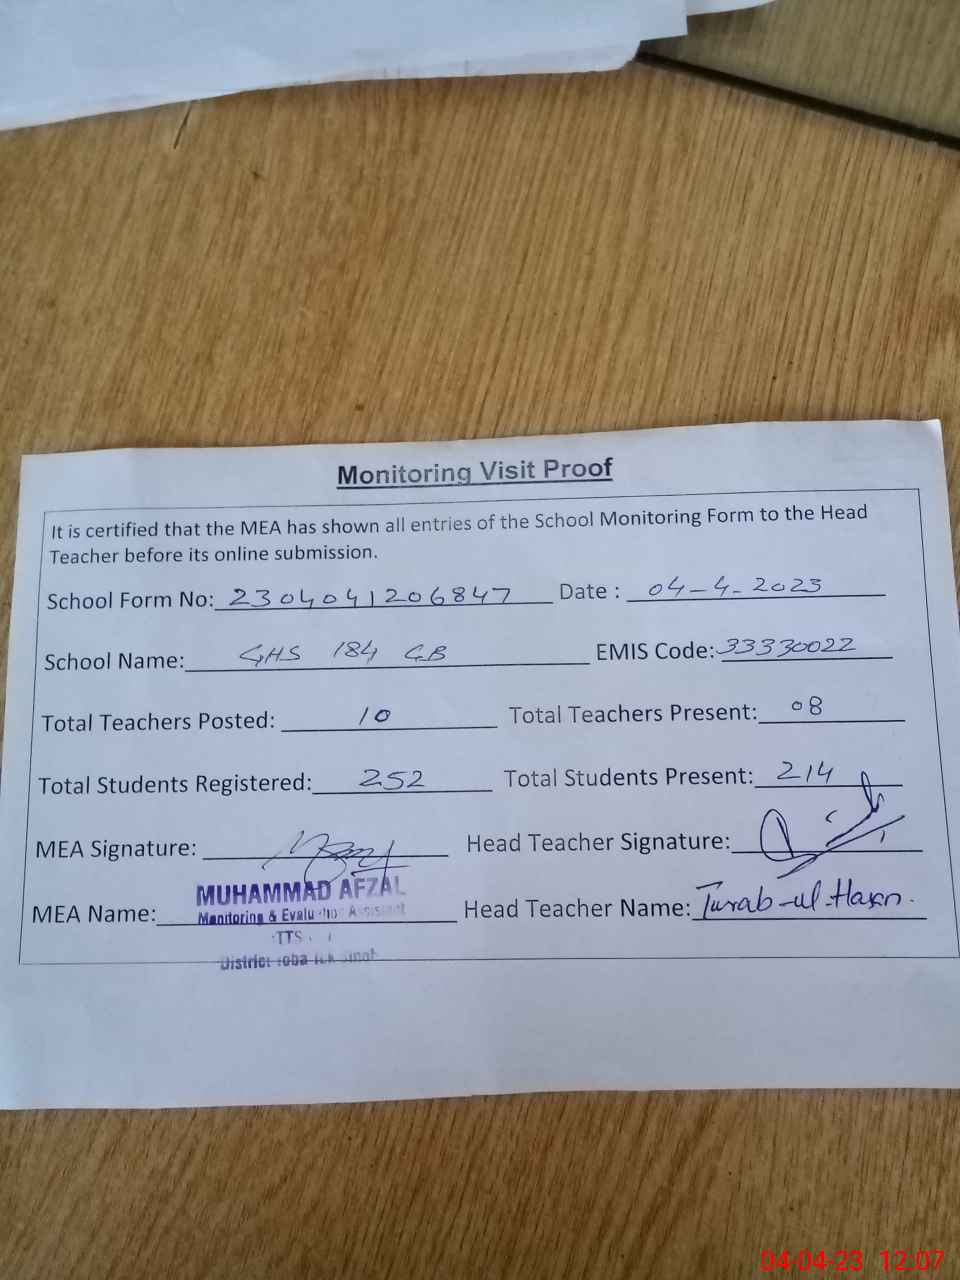 Monitoring Visit Proof
It is certified that the MEA has shown all entries of the School Monitoring Form to the Head
Teacher before its online submission.
School Form No: 2304041206847 Date : 04-4-2023
School Name: GHS 184 GB EMIS Code: 33330022
Total Teachers Posted: 10 Total Teachers Present: 08
Total Students Registered: 252 Total Students Present: 214
MEA Signature: Head Teacher Signature:
MUHAMMAD AFZAL
MEA Name: Monitoring & Evaluation Assistant Head Teacher Name: Turab-ul-Hasan.
TTS
District Toba Tek Singh
04-04-23 12:07